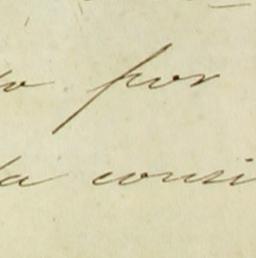 por
la consi